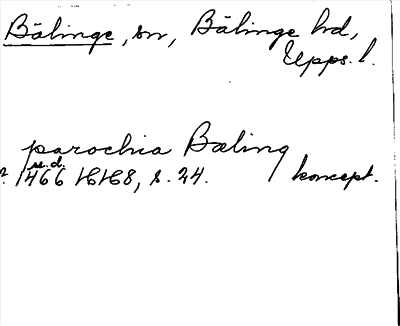 Bälinge, sn, Bälinge hd,
Upps. l.
parochia Bæling
u.d.
1466 HH8, s. 24. koncept.